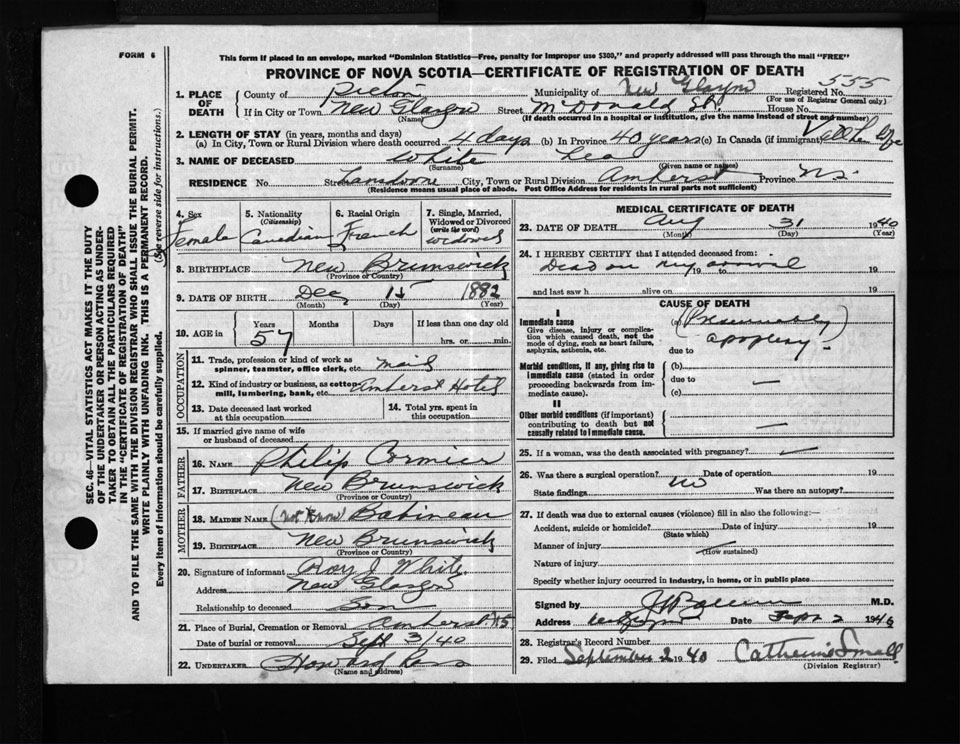 FORM 6
This form if placed in an envelope, marked "Dominion Statistics—Free, penalty for improper use $300," and properly addressed will pass through the mail "FREE"
PROVINCE OF NOVA SCOTIA—CERTIFICATE OF REGISTRATION OF DEATH
SEC. 46—VITAL STATISTICS ACT MAKES IT THE DUTY
OF THE UNDERTAKER OR PERSON ACTING AS UNDER-
TAKER TO OBTAIN ALL THE PARTICULARS REQUIRED
IN THE "CERTIFICATE OF REGISTRATION OF DEATH"
AND TO FILE THE SAME WITH THE DIVISION REGISTRAR WHO SHALL ISSUE THE BURIAL PERMIT.
WRITE PLAINLY WITH UNFADING INK. THIS IS A PERMANENT RECORD.
Every item of information should be carefully supplied. (See reverse side for instructions.)
1. PLACE OF DEATH
County of Pictou Municipality of New Glasgow Registered No. 555
(For use of Registrar General only)
If in City or Town New Glasgow Street McDonald St. House No.
(Name) (If death occurred in a hospital or institution, give the name instead of street and number)
2. LENGTH OF STAY (in years, months and days)
(a) In City, Town or Rural Division where death occurred 4 days (b) In Province 40 years (c) In Canada (if immigrant) all her life
3. NAME OF DECEASED White Lea
(Surname) (Given name or names)
RESIDENCE No. Street Lansdowne City, Town or Rural Division Amherst Province N.S.
(Residence means usual place of abode. Post Office Address for residents in rural parts not sufficient)
4. Sex Female
5. Nationality (Citizenship) Canadian
6. Racial Origin French
7. Single, Married, Widowed or Divorced (write the word) widowed
8. BIRTHPLACE New Brunswick
(Province or Country)
9. DATE OF BIRTH Dec 15 1882
(Month) (Day) (Year)
10. AGE in Years 57 Months Days If less than one day old hrs. or min.
OCCUPATION
11. Trade, profession or kind of work as spinner, teamster, office clerk, etc. Maid
12. Kind of industry or business, as cotton mill, lumbering, bank, etc. Amherst Hotel
13. Date deceased last worked at this occupation
14. Total yrs. spent in this occupation
15. If married give name of wife or husband of deceased
FATHER
16. NAME Philip Cormier
17. BIRTHPLACE New Brunswick
(Province or Country)
MOTHER
18. MAIDEN NAME (not know) Babineau
19. BIRTHPLACE New Brunswick
(Province or Country)
20. Signature of informant Roy J White
Address New Glasgow
Relationship to deceased Son
21. Place of Burial, Cremation or Removal Amherst N.S.
Date of burial or removal Sept 3/40
22. UNDERTAKER Howard Ross
(Name and address)
MEDICAL CERTIFICATE OF DEATH
23. DATE OF DEATH Aug 31 1940
(Month) (Day) (Year)
24. I HEREBY CERTIFY that I attended deceased from:
Dead on my arrival 19 to 19
and last saw h alive on 19
CAUSE OF DEATH
I
Immediate cause
Give disease, injury or complication which caused death, not the mode of dying, such as heart failure, asphyxia, asthenia, etc.
(a) (Presumably) apoplexy.
due to
Morbid conditions, if any, giving rise to immediate cause (stated in order proceeding backwards from immediate cause).
(b)
due to —
(c)
II
Other morbid conditions (if important) contributing to death but not causally related to immediate cause. —
25. If a woman, was the death associated with pregnancy?
26. Was there a surgical operation? no Date of operation 19
State findings Was there an autopsy?
27. If death was due to external causes (violence) fill in also the following:—
Accident, suicide or homicide? Date of injury 19
(State which)
Manner of injury
(How sustained)
Nature of injury
Specify whether injury occurred in industry, in home, or in public place
Signed by M.D.
Address Date Sept 2 1940
28. Registrar's Record Number
29. Filed September 2 1940 Catherine Small
(Division Registrar)